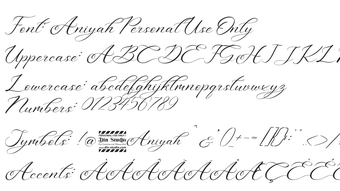 Font: Aniyah Personal Use Only
Uppercase: ABCDEFGHIJKL
Lowercase: abcdefghijklmnopqrstuvwxyz
Numbers: 0123456789
Symbols: !@ Aniyah & *()+-= []{} :; <>/
Accents: ÀÁÂÃÄÅÇÈÉ